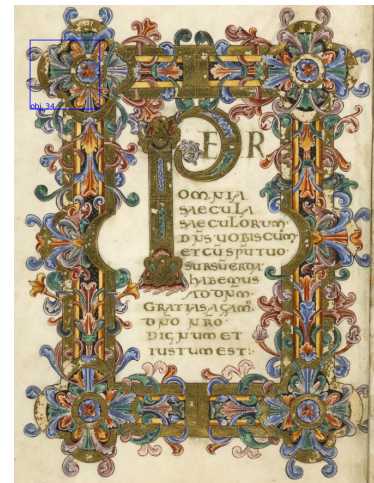 PER
OMNIA
SAECULA
SAECULORUM
DNS UOBISCUM
ET CU SPU TUO
SURSU CORDA
HABEMUS
AD DNM
GRATIAS AGAM
DNO NRO
DIGNUM ET
IUSTUM EST
obj_34